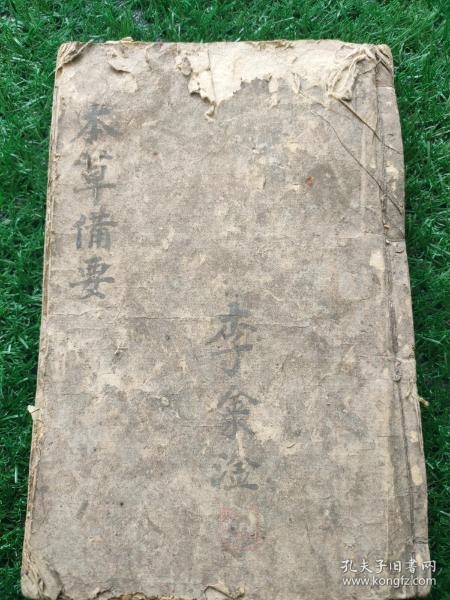 本草備要
李金淦
孔夫子旧书网
www.kongfz.com